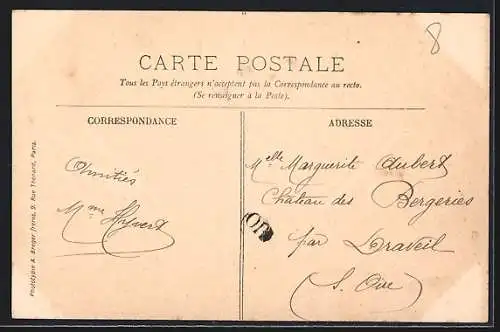 8
CARTE POSTALE
Tous les Pays étrangers n'acceptent pas la Correspondance au recto.
(Se renseigner à la Poste).
CORRESPONDANCE
ADRESSE
Amitiés
Mme
Melle Marguerite Aubert
Château des Bergeries
par Draveil
(S. Oise)
OR
Phototypie A. Breger frères, 9, Rue Thénard, Paris.